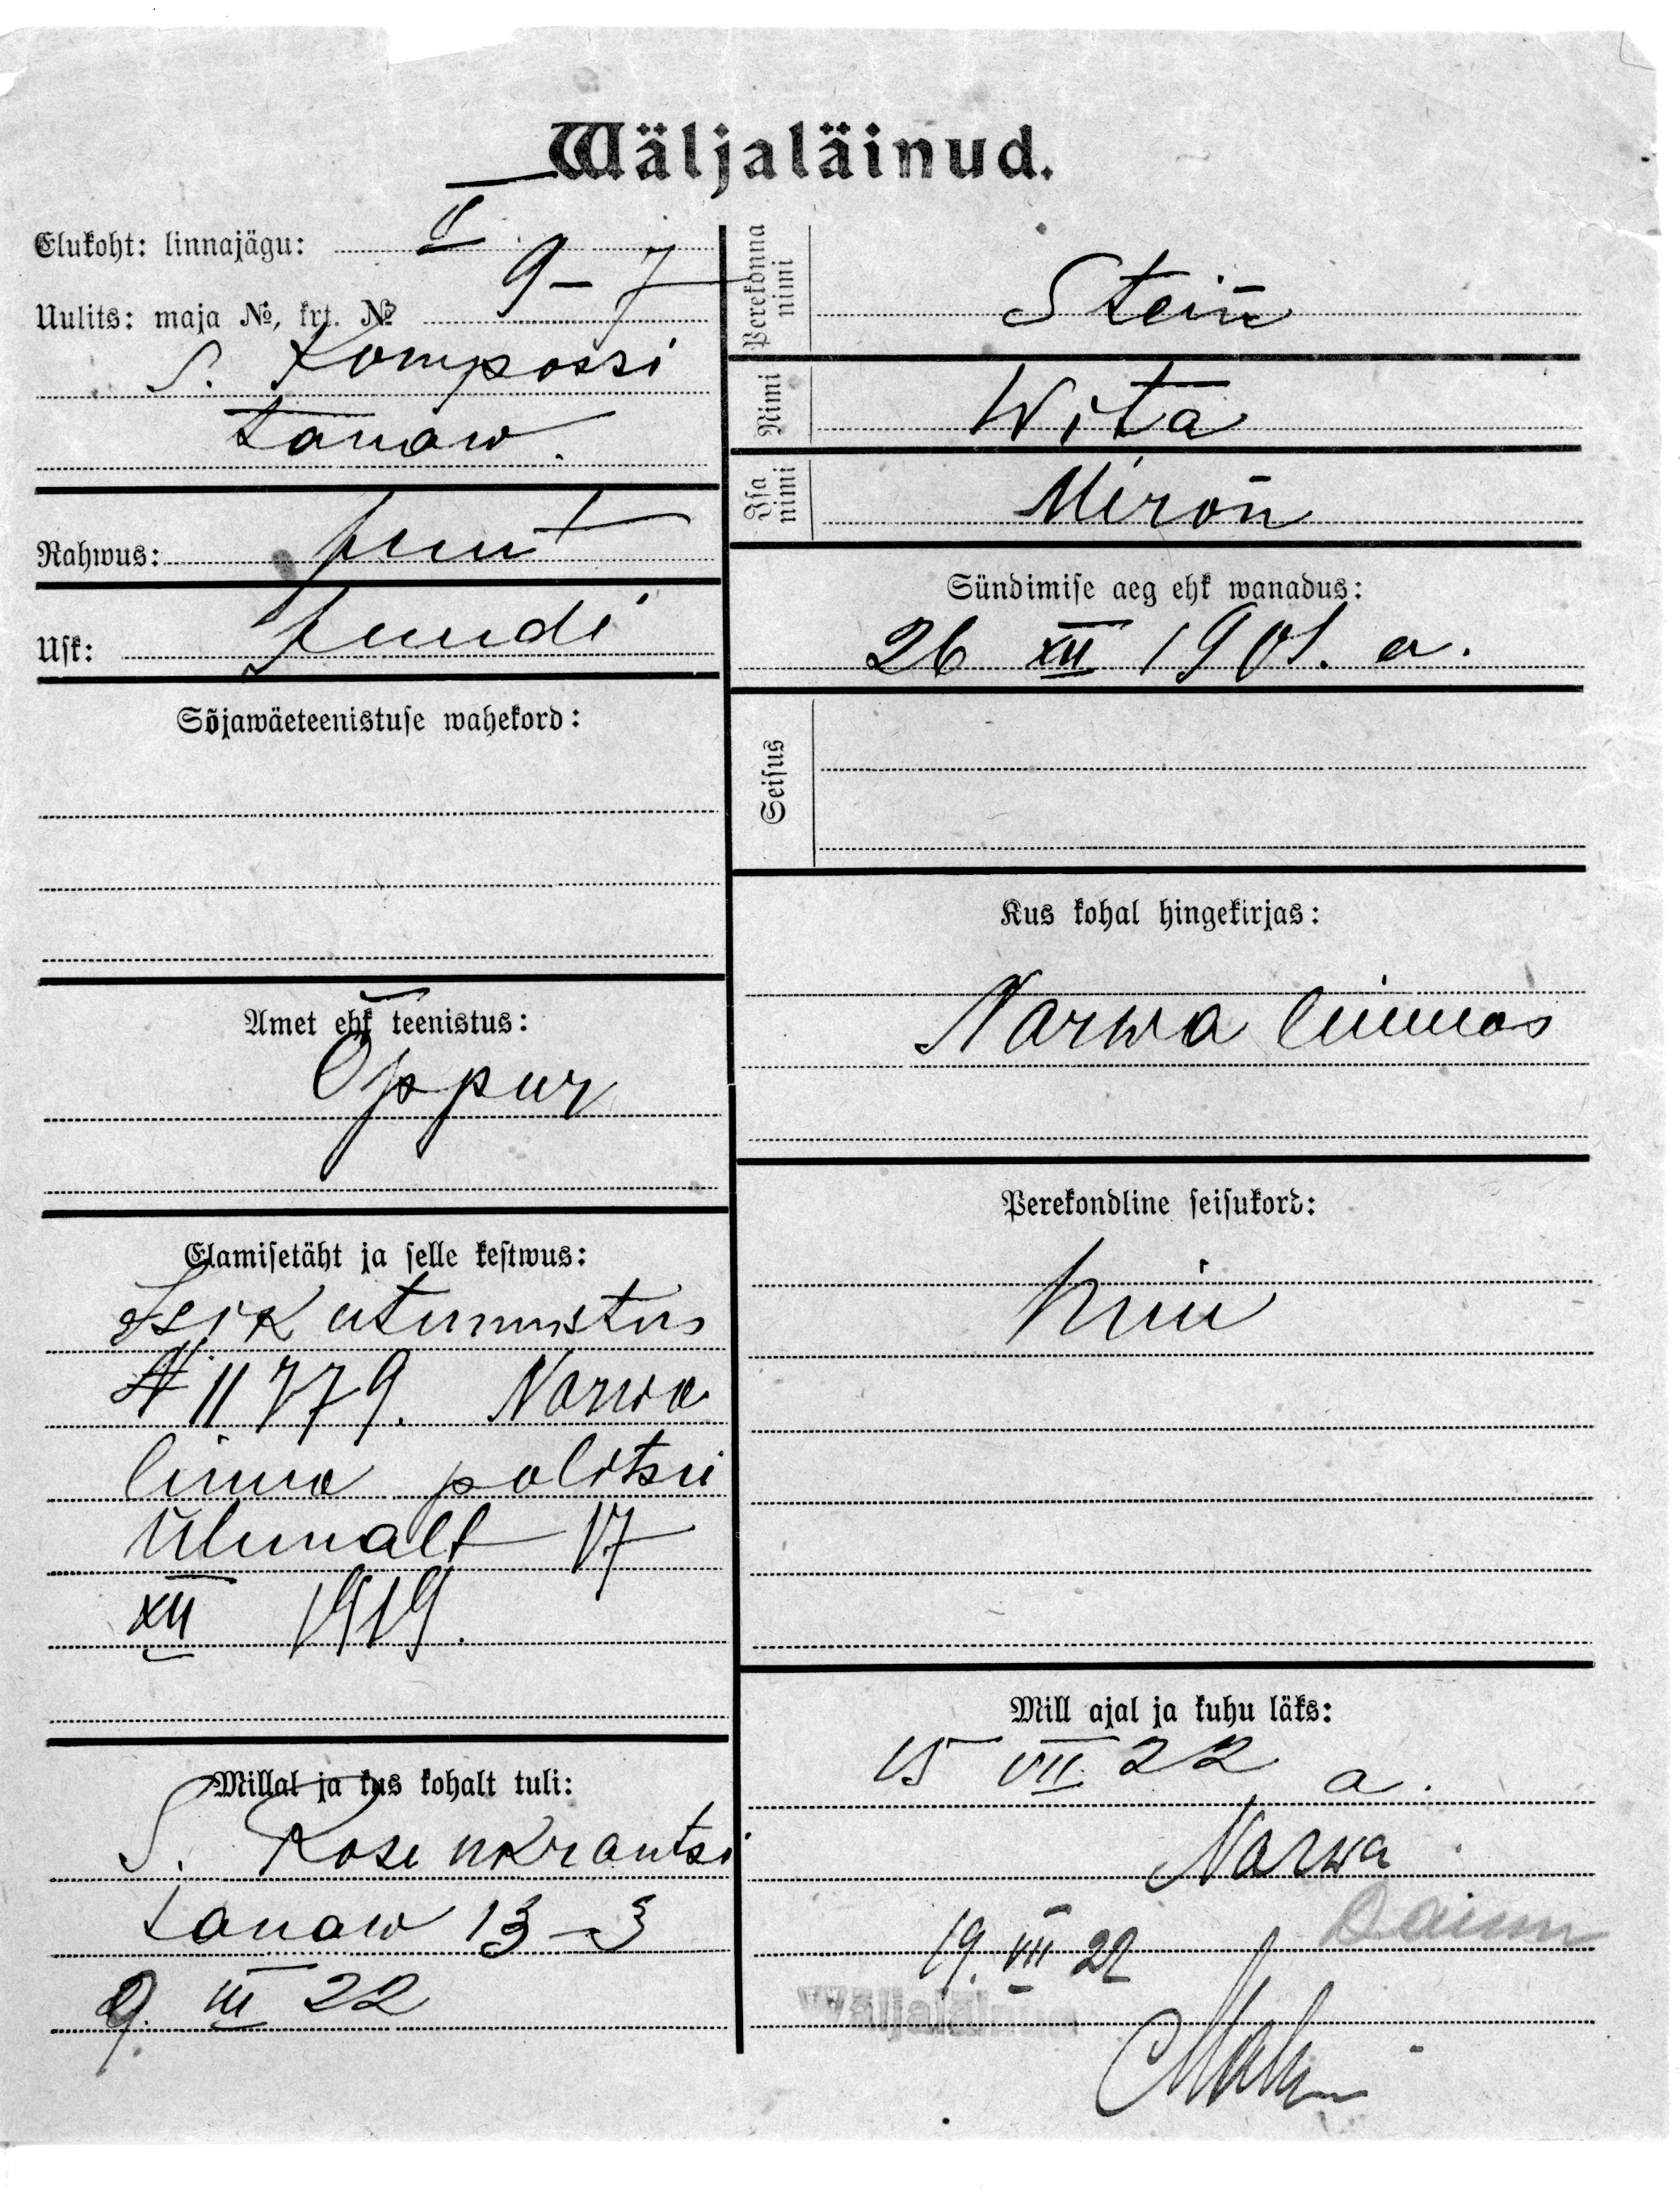 Wäljaläinud.
Elukoht: linnajägu: II
Uulits: maja №, krt. № 9-7
S. Kompassi
tänaw.
Rahwus: juut
Usk: juudi
Sõjawäeteenistuse wahekord:
Amet ehk teenistus:
Õppur
Elamisetäht ja selle kestwus:
Isikutunnistus
№ 11779. Narwa
linna politsei
ülemalt 17
XII 1919.
Millal ja kus kohalt tuli:
S. Rosenkrantsi
tänaw 13-3
9. III 22
Perekonna nimi
Stein
Nimi
Wita
Isa nimi
Miron
Sündimise aeg ehk wanadus:
26 XII 1901. a.
Seisus
Kus kohal hingekirjas:
Narwa linnas
Perekondline seisukord:
Mill ajal ja kuhu läks:
15 VII 22 a.
Narwa
19. VII 22
Wäljaläinud